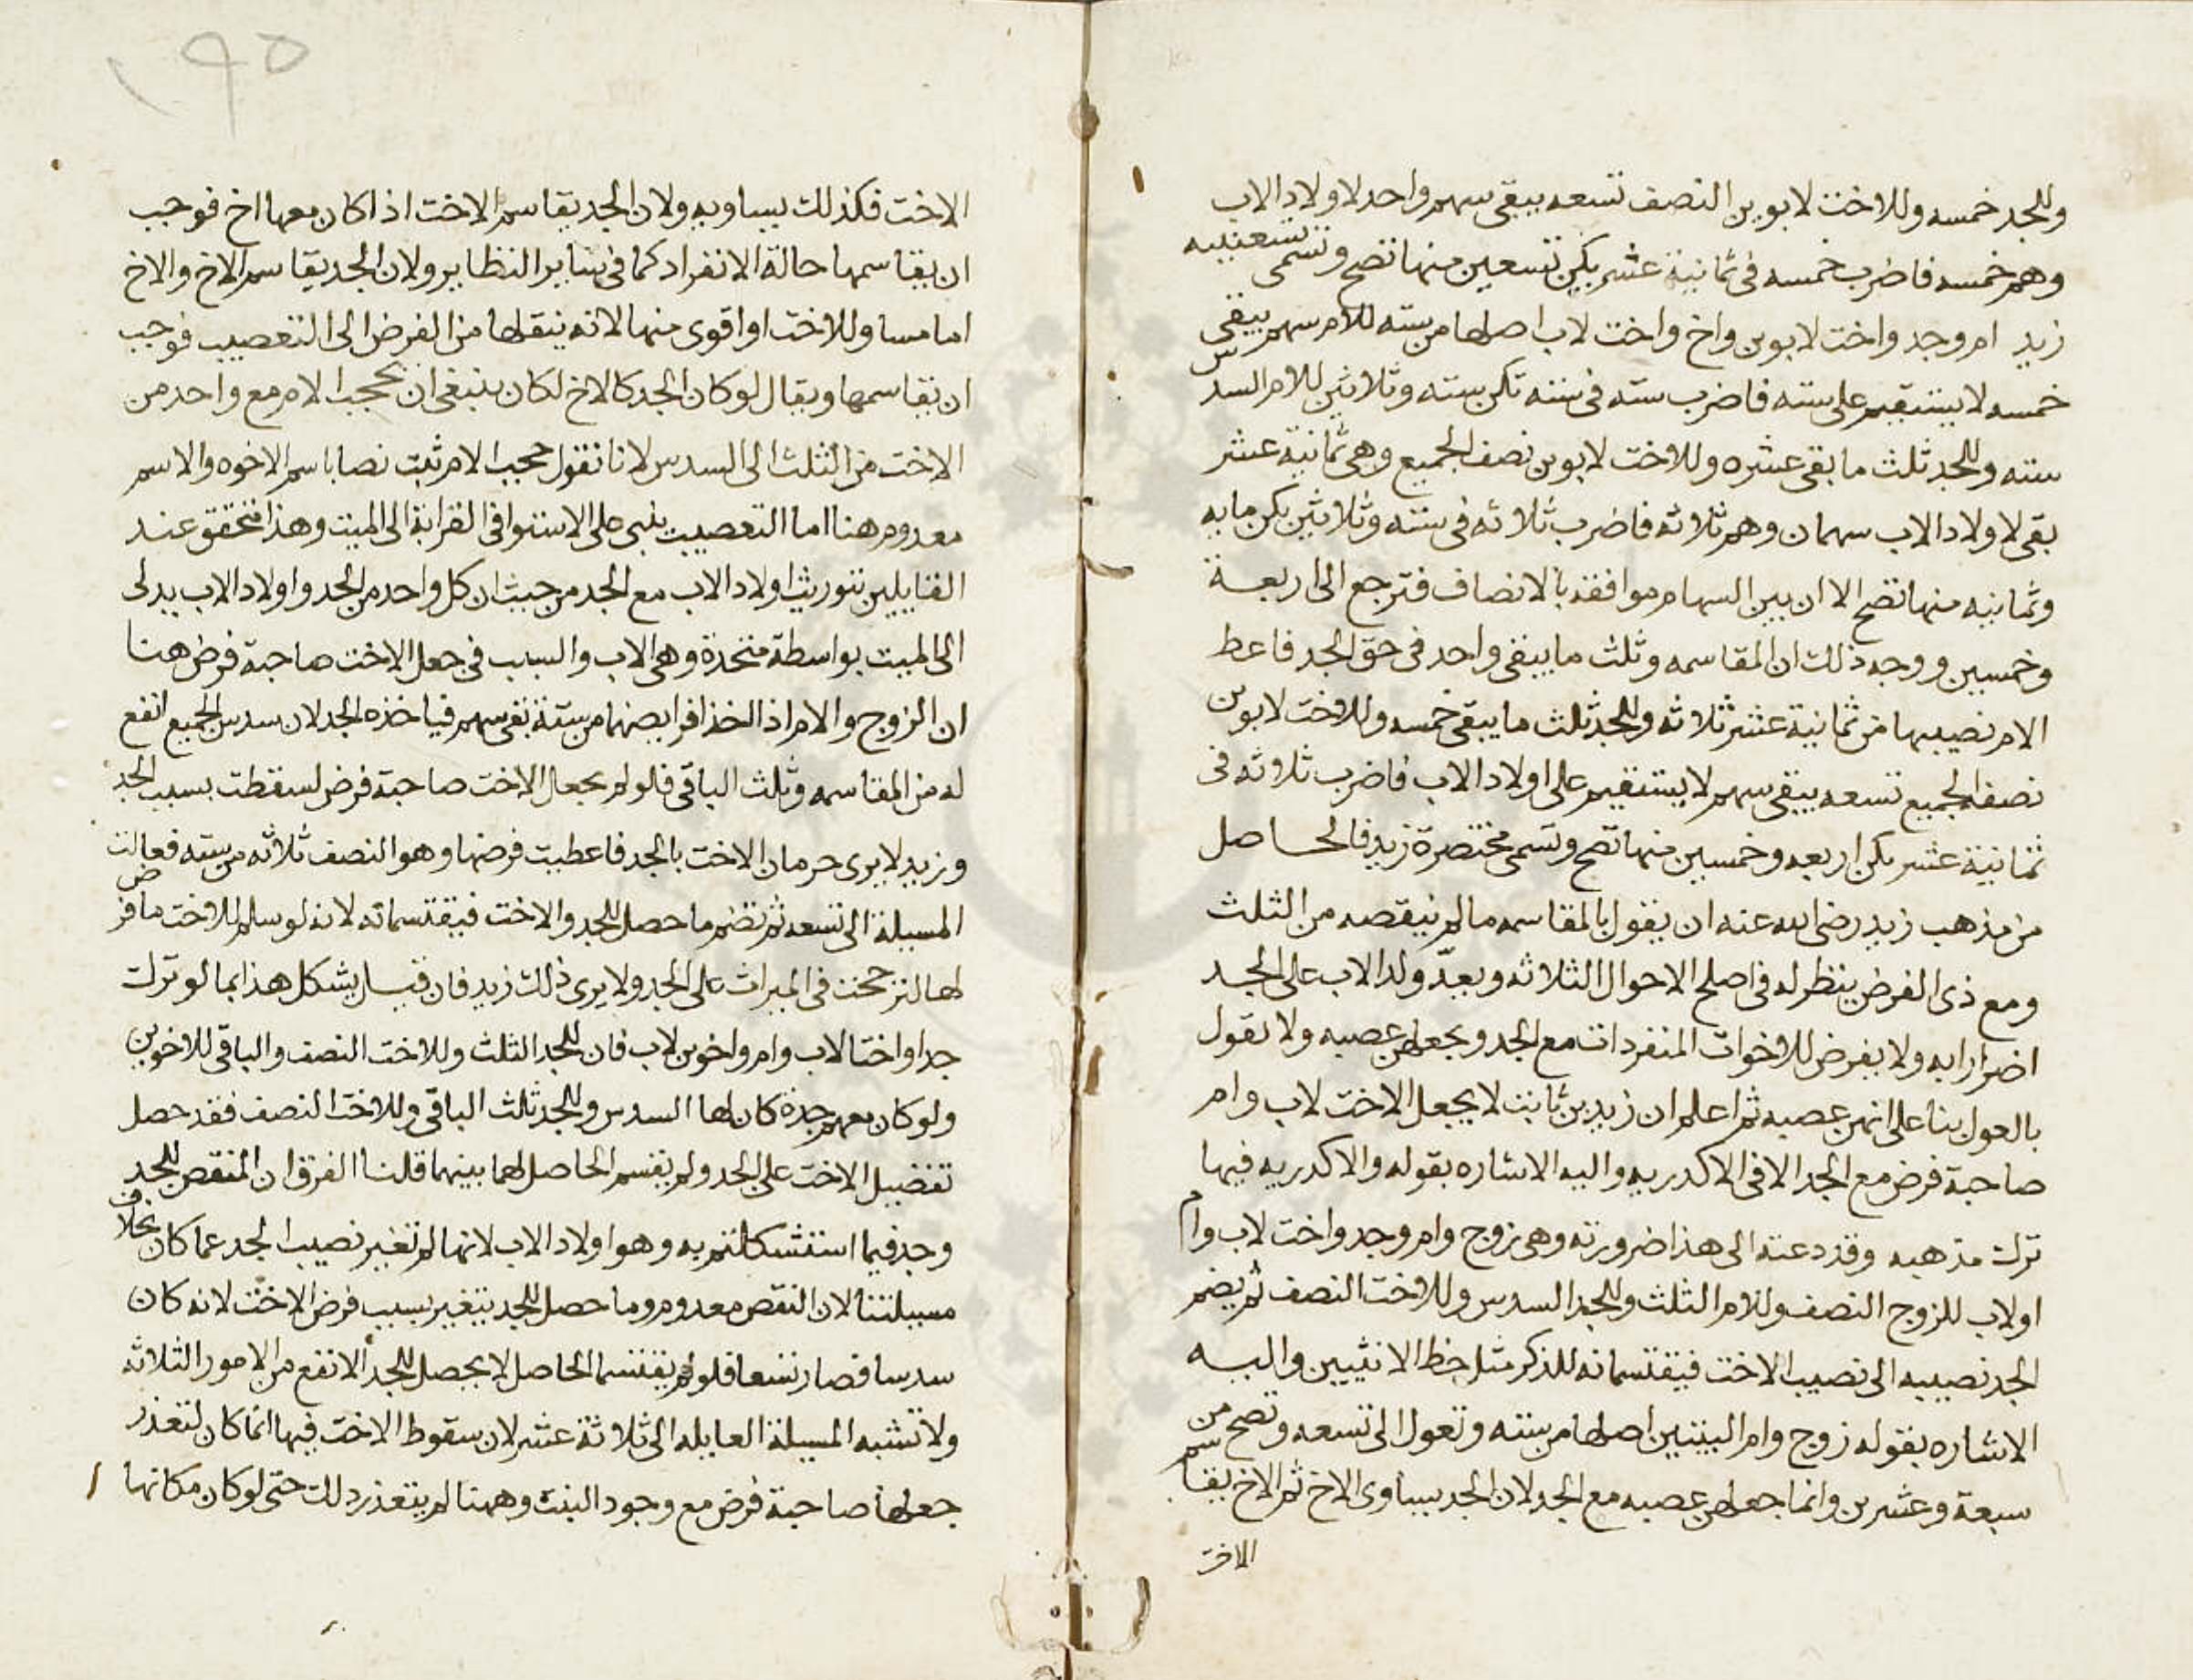 وللجد خمسه وللاخت لابوين النصف تسعه يبقى سهم واحد لاولاد الاب
وهم خمسه فاضرب خمسه في ثمانية عشر يكن تسعين منها تصح وتسمى تسعينيه
زيد ام وجد واخت لابوين واخ واخت لاب اصلها من سته للام سهم يبقى
خمسه لا يستقيم على سته فاضرب سته في سته تكن سته وثلاثين للام السدس
سته وللجد ثلث ما بقى عشره وللاخت لابوين نصف الجميع وهي ثمانية عشر
بقى لاولاد الاب سهمان وهم ثلاثه فاضرب ثلاثه في سته وثلاثين يكن مايه
وثمانيه منها تصح الا ان بين السهام موافقه بالانصاف فترجع الى اربعة
وخمسين ووجه ذلك ان المقاسمه وثلث ما يبقى واحد في حق الجد فاعط
الام نصيبها من ثمانية عشر ثلاثه وللجد ثلث ما يبقى خمسه وللاخت لابوين
نصف الجميع تسعه يبقى سهم لا يستقيم على اولاد الاب فاضرب ثلاثه في
ثمانية عشر يكن اربعه وخمسين منها تصح وتسمى مختصرة زيد فالحاصل
من مذهب زيد رضى الله عنه ان يقول بالمقاسمه ما لم ينقصه من الثلث
ومع ذى الفرض ينظر له في اصلح الاحوال الثلاثه ويعدّ ولد الاب على الجد
اضرارا به ولا يفرض للاخوات المنفردات مع الجد ويجعلهن عصبه ولا يقول
بالعول بنا على انهن عصبه ثم اعلم ان زيد بن ثابت لا يجعل الاخت لاب وام
صاحبة فرض مع الجد الا في الاكدريه واليه الاشاره بقوله والاكدريه فيها
ترك مذهبه وقد دعته الى هذا ضرورته وهي زوج وام وجد واخت لاب وام
او لاب للزوج النصف وللام الثلث وللجد السدس وللاخت النصف ثم يضم
الجد نصيبه الى نصيب الاخت فيقتسمانه للذكر مثل حظ الانثيين واليه
الاشاره بقوله زوج وام البيتين اصلها من سته وتعول الى تسعه وتصح من
سبعة وعشرين وانما جعلهن عصبه مع الجد لان الجد يساوى الاخ ثم الاخ يقاسم
الاخت
١٩٥
الاخت فكذلك يساويه ولان الجد يقاسم الاخت اذا كان معها اخ فوجب
ان يقاسمها حالة الانفراد كما في ساير النظاير ولان الجد يقاسم الاخ والاخ
اما مساو للاخت او اقوى منها لانه ينقلها من الفرض الى التعصيب فوجب
ان يقاسمها ويقال لو كان الجد كالاخ لكان ينبغي ان يحجب الام مع واحد من
الاخت من الثلث الى السدس لانا نقول حجب الام ثبت نصا باسم الاخوه والاسم
معدوم هنا اما التعصيب ينبى على الاستوا في القرابة الى الميت وهذا متحقق عند
القايلين بتوريث اولاد الاب مع الجد من حيث ان كل واحد من الجد واولاد الاب يدلى
الى الميت بواسطة متحدة وهي الاب والسبب في جعل الاخت صاحبة فرض هنا
ان الزوج والام اذا اخذا فرايضهما من ستة بقى سهم فياخذه الجد لان سدس الجميع انفع
له من المقاسمه وثلث الباقي فلو لم يجعل الاخت صاحبة فرض لسقطت بسبب الجد
وزيد لا يرى حرمان الاخت بالجد فاعطيت فرضها وهو النصف ثلاثه من سته فعالت
المسيلة الى تسعه ثم تضم ما حصل للجد والاخت فيقتسمانه لانه لو سلم للاخت ما فرض
لها لترجحت في الميراث على الجد ولا يرى ذلك زيد فان قيل يشكل هذا بما لو ترك
جدا واختا لاب وام واخوين لاب فان للجد الثلث وللاخت النصف والباقي للاخوين
ولو كان معهم جدة كان لها السدس وللجد ثلث الباقي وللاخت النصف فقد حصل
تفضيل الاخت على الجد ولم يقسم الحاصل لهما بينهما قلنا الفرق ان المنقص للجد
وجد فيما استشكلتم به وهو اولاد الاب لانها لم تغير نصيب الجد عما كان بخلاف
مسيلتنا لان النقص معدوم وما حصل للجد يتغير بسبب فرض الاخت لانه كان
سدسا فصار تسعا فلو لم يقتسما الحاصل لا يحصل للجد الانفع من الامور الثلاثه
ولا تشبه المسيلة العايله الى ثلاثة عشر لان سقوط الاخت فيها انما كان لتعذر
جعلها صاحبة فرض مع وجود البنت وههنا لم يتعذر ذلك حتى لو كان مكانها